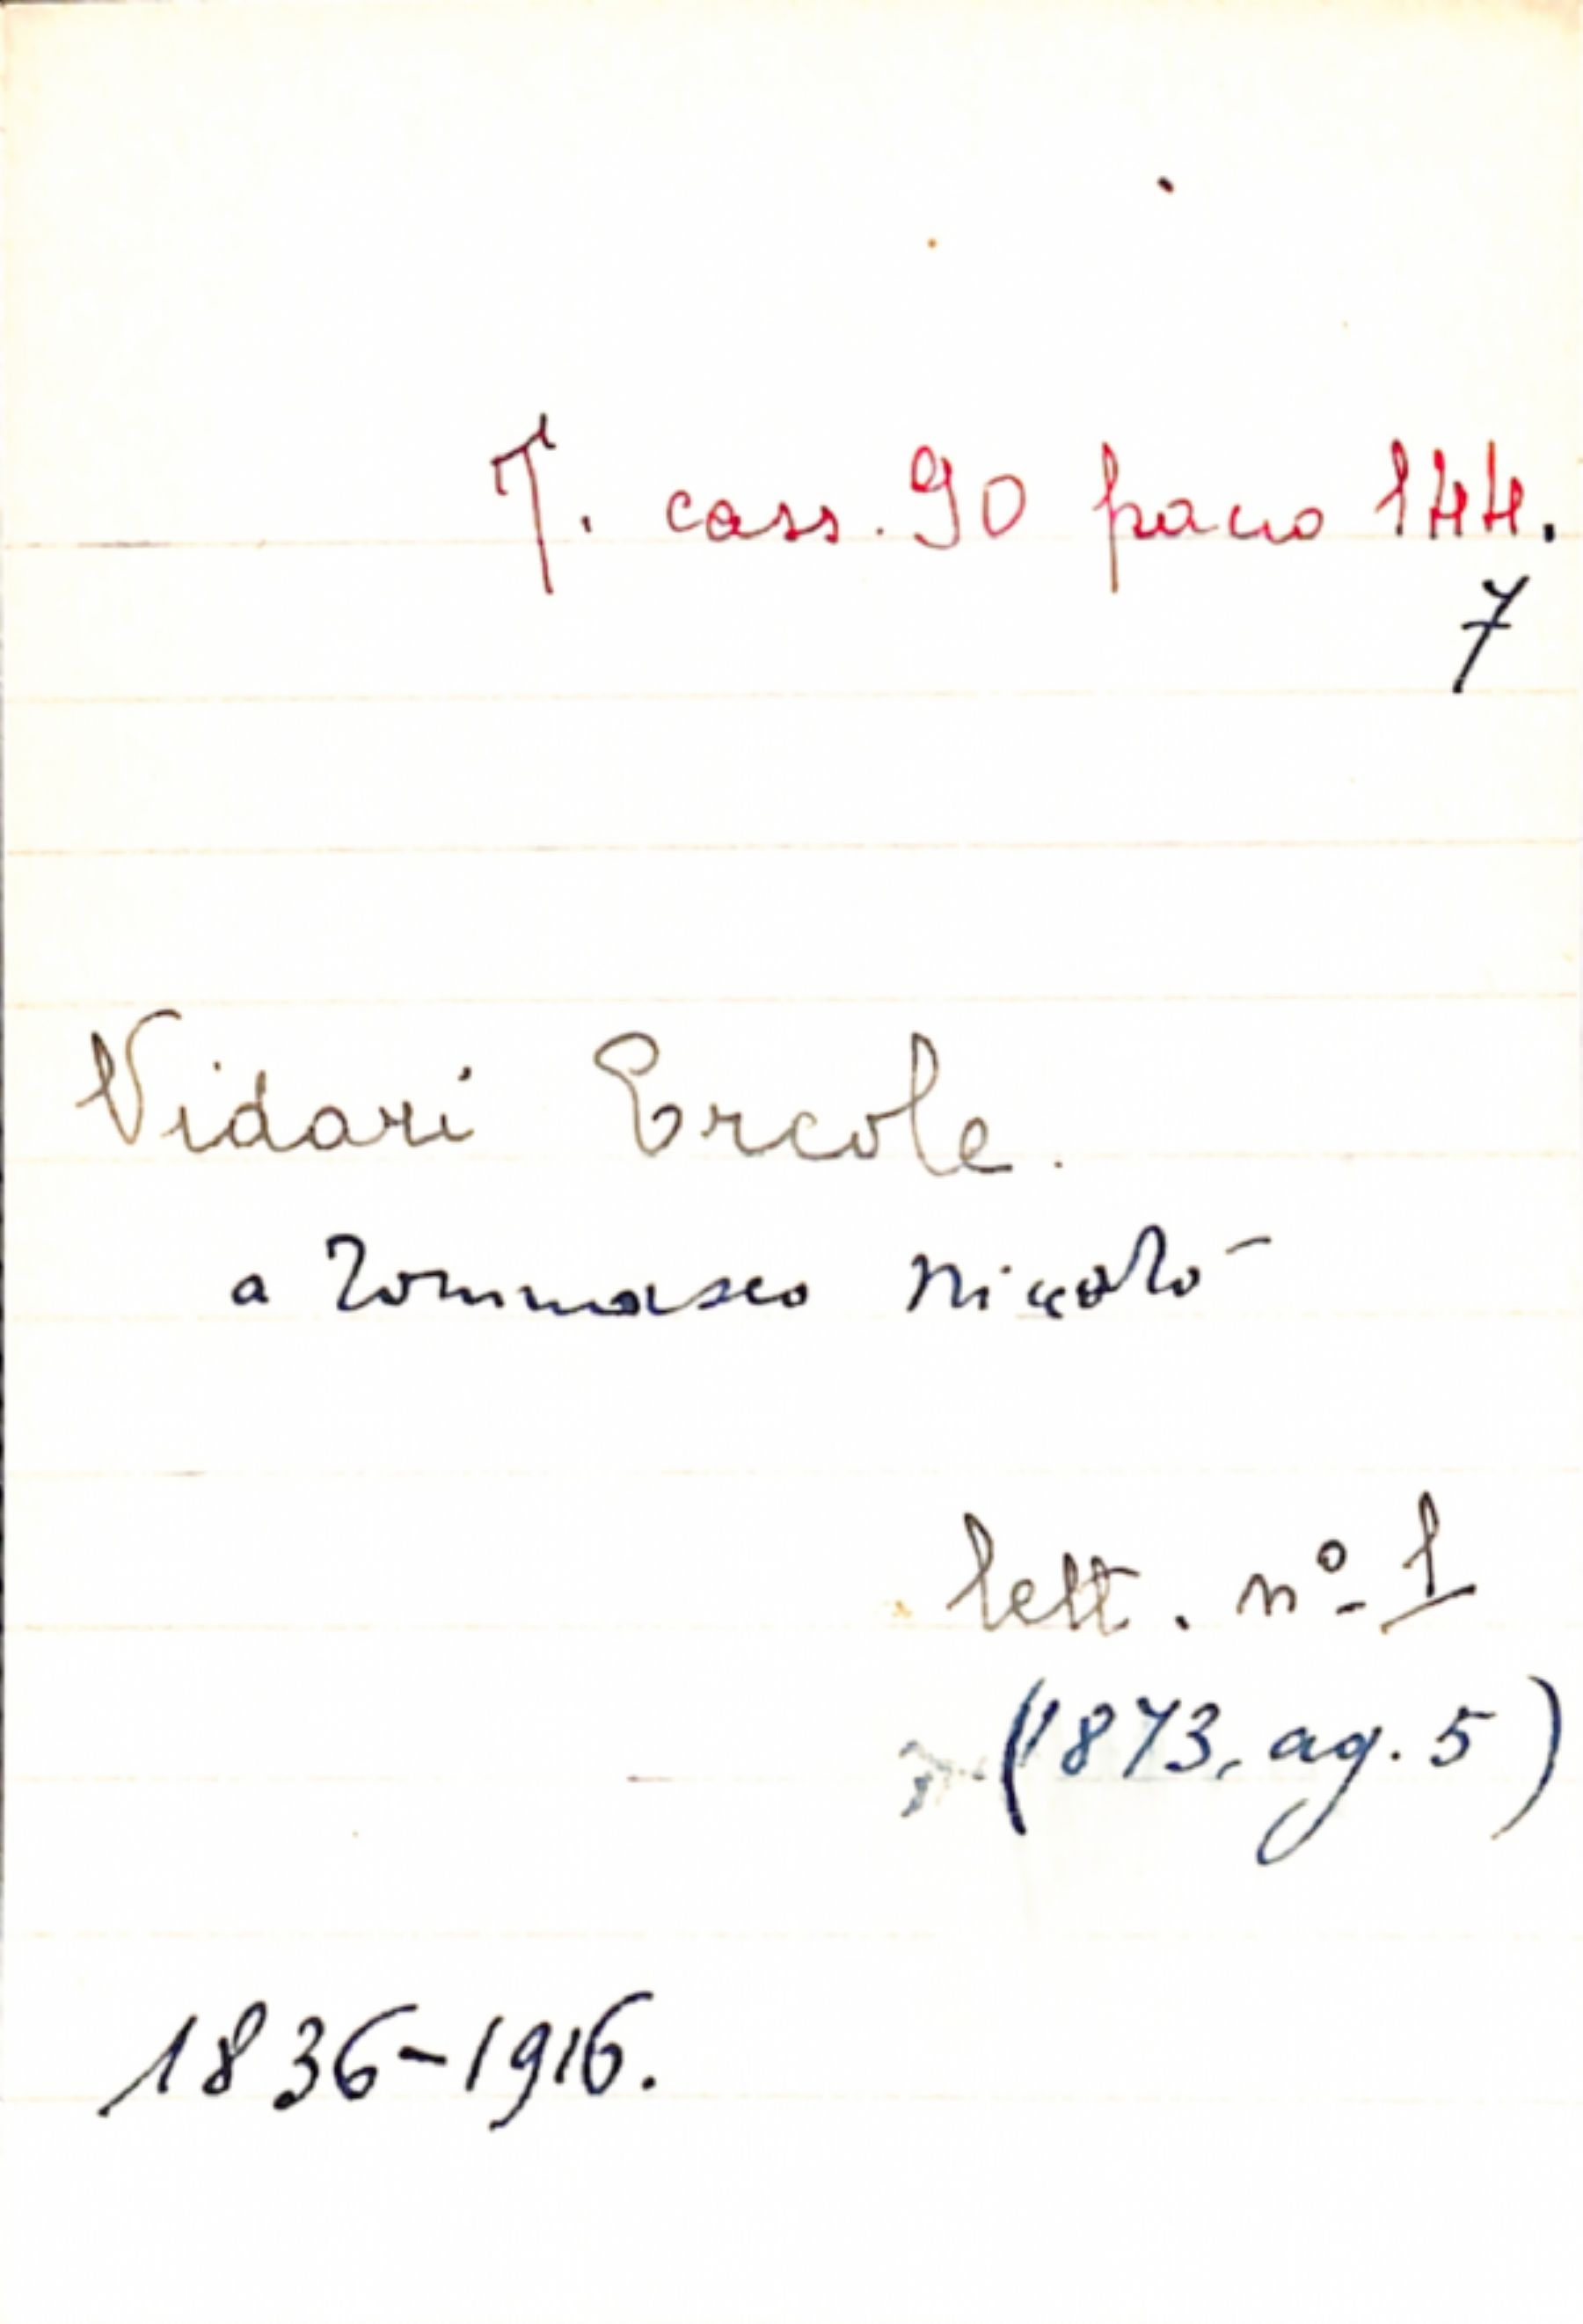 T. cass. 90 pacco 144.
7
Vidari Ercole.
a Tommaseo Niccolò
lett. nº 1
(1873, ag. 5)
1836-1916.